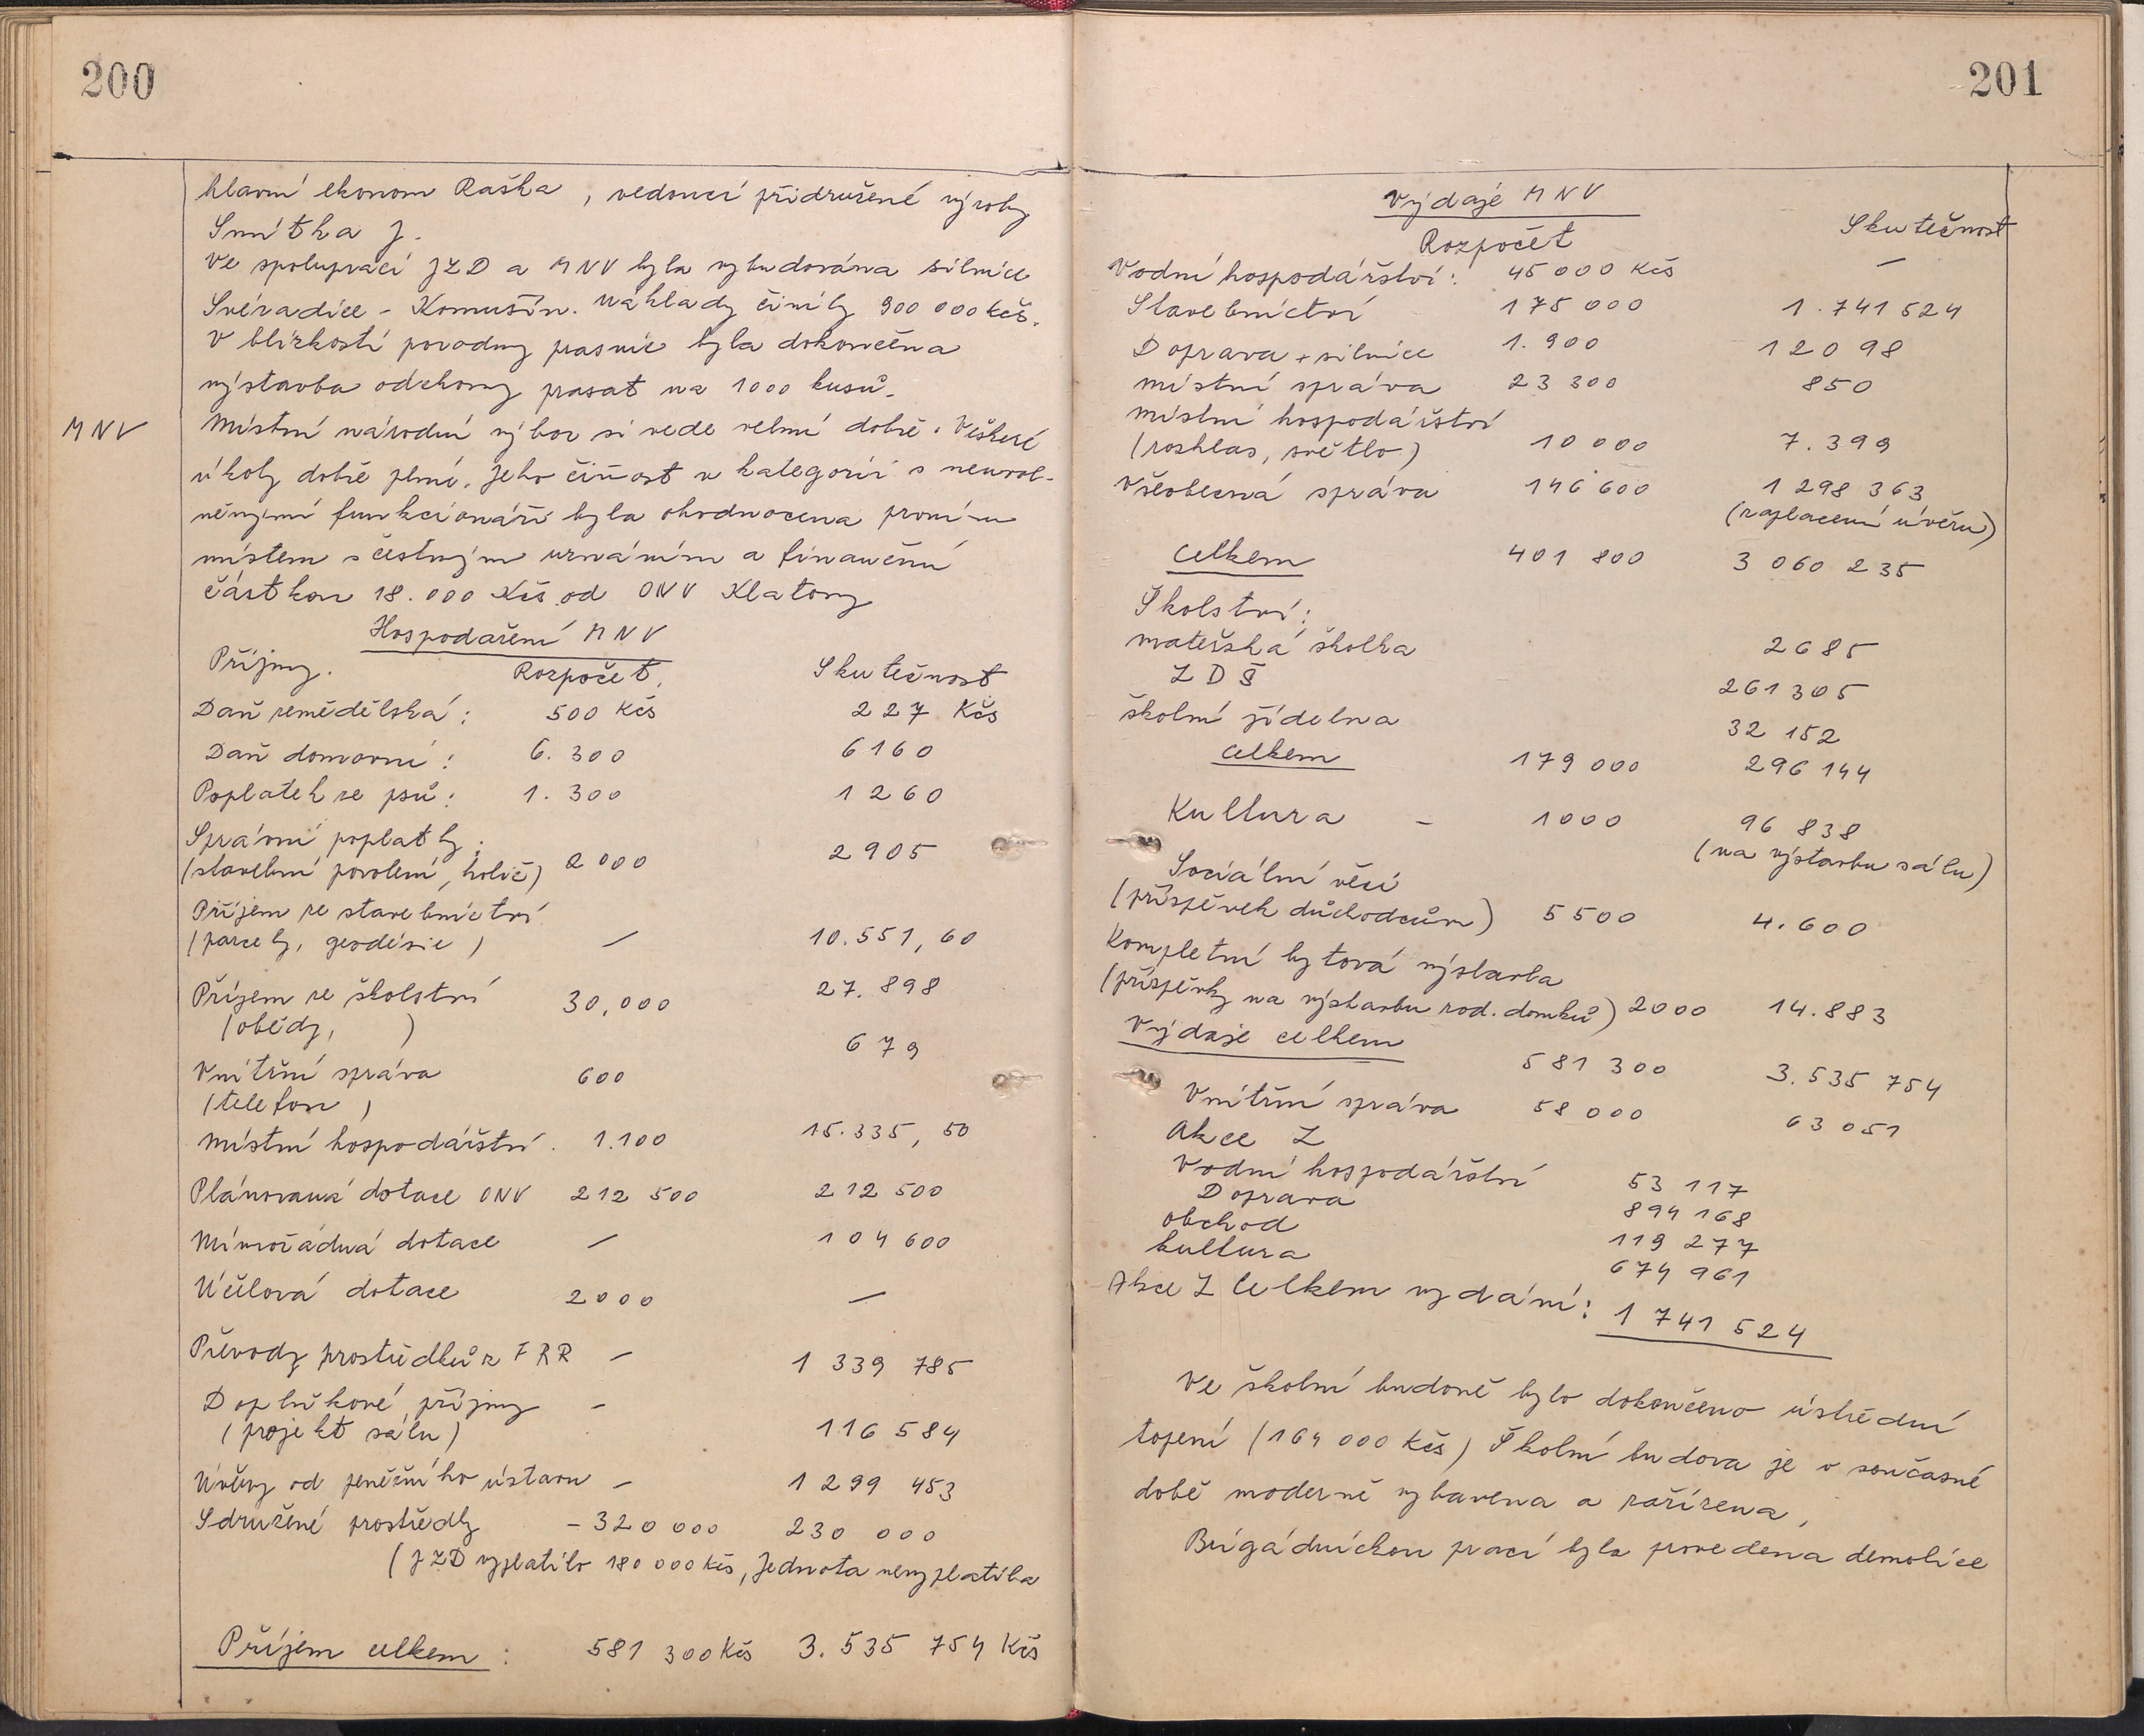 200
hlavní ekonom Raška, vedoucí přidružené výroby
Smitka J.
Ve spolupráci JZD a MNV byla vybudována silnice
Svéradice - Komušín. Náklady činily 900 000 Kčs.
V blízkosti porodny prasnic byla dokončena
výstavba odchovny prasat na 1000 kusů.
MNV
Místní národní výbor si vede velmi dobře. Veškeré
úkoly dobře plní. Jeho činnost v kategorii s neuvol-
něnými funkcionáři byla ohodnocena prvním
místem s čestným uznáním a finanční
částkou 18.000 Kčs od ONV Klatovy
Hospodaření MNV
Příjmy. Rozpočet. Skutečnost
Daň zemědělská: 500 Kčs 227 Kčs
Daň domovní: 6.300 6160
Poplatek ze psů: 1.300 1260
Správní poplatky:
(stavební povolení, holič) 2000 2905
Příjem ze stavebnictví
(parcely, geodésie) — 10.551,60
Příjem ze školství 30,000 27.898
(obědy, )
Vnitřní správa 600 679
(telefon)
Místní hospodářství. 1.100 15.335,50
Plánovaná dotace ONV 212 500 212 500
Mimořádná dotace — 104 600
Účelová dotace 2000 —
Převody prostředků z FRR — 1 339 785
Doplňkové příjmy -
(projekt sálu) 116 584
Úvěry od peněžního ústavu - 1 299 453
Sdružené prostředky - 320 000 230 000
(JZD vyplatilo 180 000 Kčs, Jednota nevyplatila
Příjem celkem: 581 300 Kčs 3.535 754 Kčs
201
Výdaje MNV
Rozpočet Skutečnost
Vodní hospodářství: 45 000 Kčs —
Stavebnictví 175 000 1.741 524
Doprava + silnice 1.900 12098
Místní správa 23 300 850
Místní hospodářství
(rozhlas, světlo) 10 000 7.399
Všeobecná správa 146 600 1 298 363
(zaplacení úvěru)
celkem 401 800 3 060 235
Školství:
mateřská školka 2685
ZDŠ 261 305
školní jídelna 32 152
celkem 179 000 296 144
Kultura - 1000 96 838
(na výstavbu sálu)
Sociální věci
(příspěvek důchodcům) 5500 4.600
Kompletní bytová výstavba
(příspěvky na výstavbu rod. domků) 2000 14.883
Výdaje celkem 581 300 3.535 754
Vnitřní správa 58 000 63 051
Akce Z
Vodní hospodářství 53 117
Doprava 894 168
obchod 119 277
kultura 674 961
Akce Z Celkem vydání: 1 741 524
Ve školní budově bylo dokončeno ústřední
topení (164 000 Kčs) Školní budova je v současné
době moderně vybavena a zařízena,
Brigádnickou prací byla provedena demolice